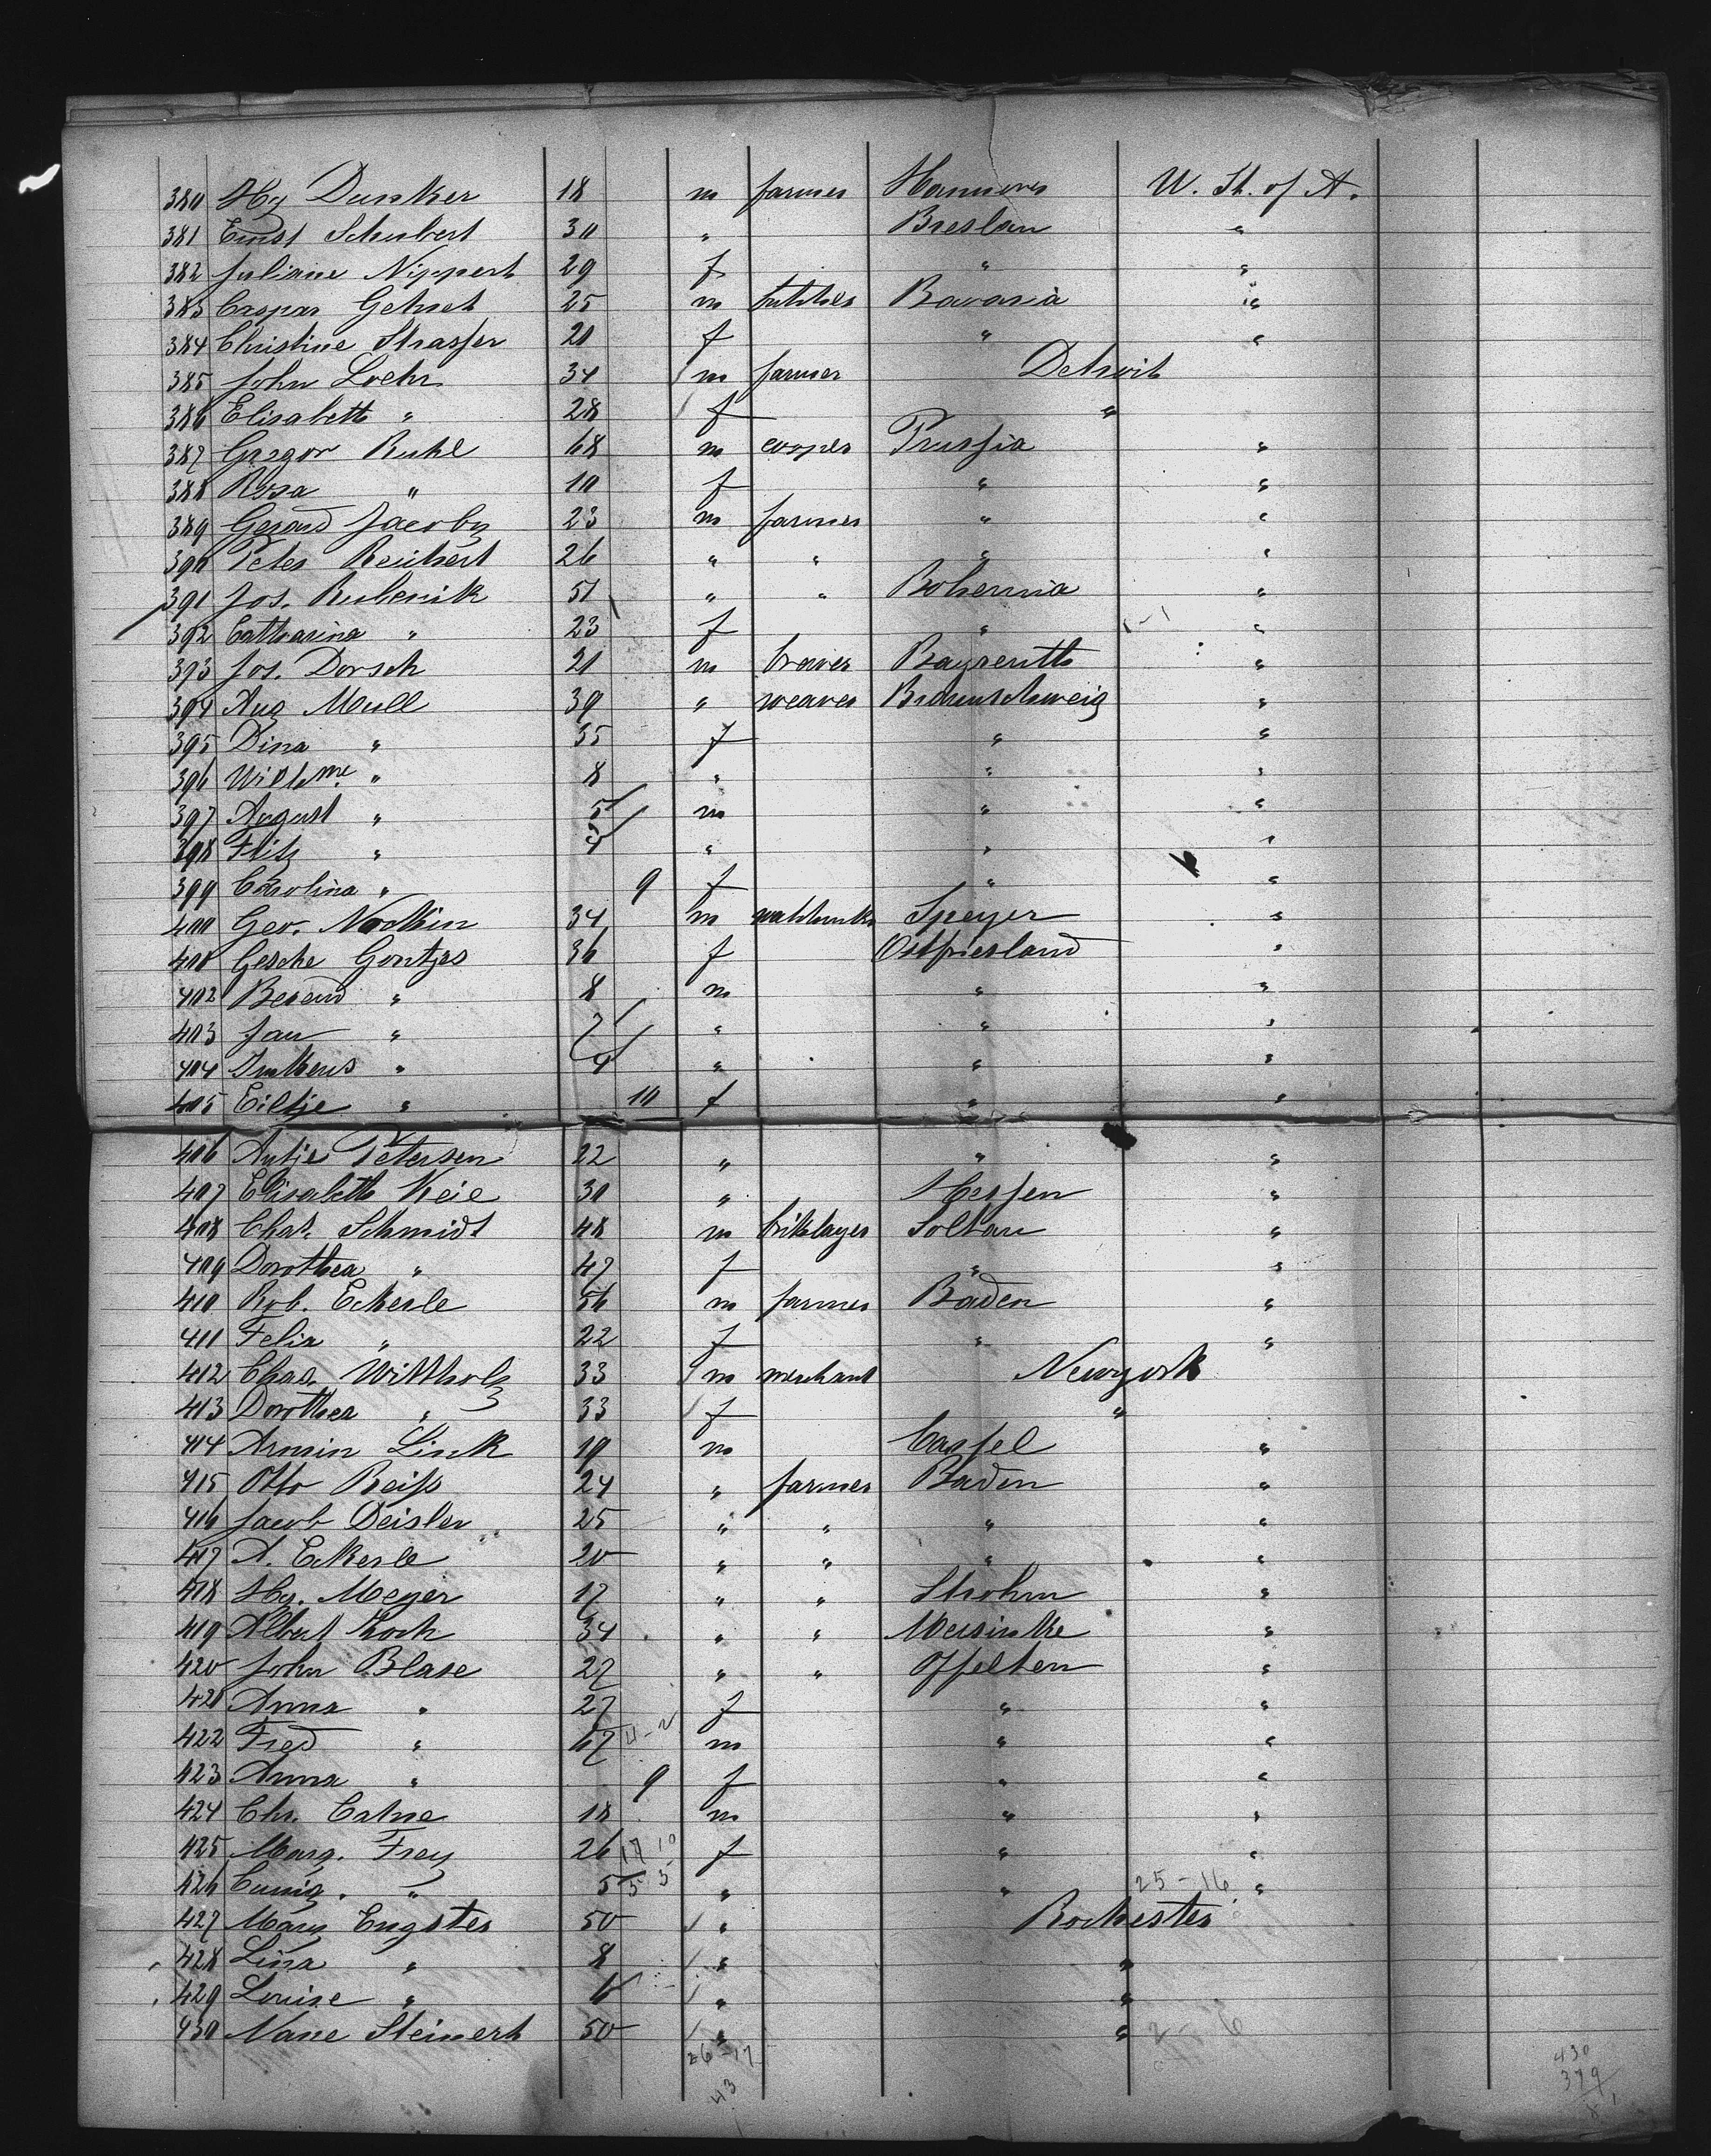 380 Hy Dunker 18 m farmer Hannover U. St. of A.
381 Ernst Schubert 30 " Breslau "
382 Juliane Nippert 29 f " "
383 Caspar 25 m Bavaria "
384 Christine Strasser 20 f " "
385 John Loehr 34 m farmer Detroit
386 Elisabeth " 28 f "
387 Gregor Ruhl 68 m cooper Prussia "
388 Rosa " 10 f " "
389 Gerard Jacoby 23 m farmer " "
390 Peter Reichert 26 " " " "
391 Jos. 51 " " Bohemia "
392 Catharina " 23 f " "
393 Jos. Dorsch 21 m brewer Bayreuth "
394 Aug Mull 39 " weaver Braunschweig "
395 Dina " 35 f " "
396 Wilhme. " 8 " " "
397 August " 5 m " "
398 Fritz " 4 " " "
399 Carolina " 9 f " "
400 Geo. 34 m Speyer "
401 Gesche Gontjes 36 f Ostfriesland "
402 Berend " 8 m " "
403 Jan " 7 " " "
404 " 4 " " "
405 Eiltje " 10 f " "
406 Antje Petersen 22 " " "
407 Elisabeth Keie 30 " Hessen "
408 Chas. Schmidt 48 m briklayer Soltau "
409 Dorothea " 47 f " "
410 Rob. Eckerle 56 m farmer Baden "
411 Felix " 22 f " "
412 Chas. Wittholz 33 m merchant Newyork
413 Dorothea " 33 f "
414 Armin Link 19 m Cassel "
415 Otto Reiß 24 " farmer Baden "
416 Jacob Deisler 25 " " " "
417 A. Eckerle 20 " " " "
418 Hy. Meyer 17 " " Strohm "
419 Albert Koch 34 " " "
420 John Blase 27 " " Offelten "
421 Anna " 27 f " "
422 Fred " 67 m " "
423 Anna " 9 f " "
424 Chr. 18 m " "
425 Marg. Frey 26 f " "
426 Cunig. " 5 " " 25-16 "
427 Mary Engster 50 " Rochester
428 Lina " 8 " "
429 Louise " 6 " "
430 Nane Steinert 50 " "
26-17
43
430
379